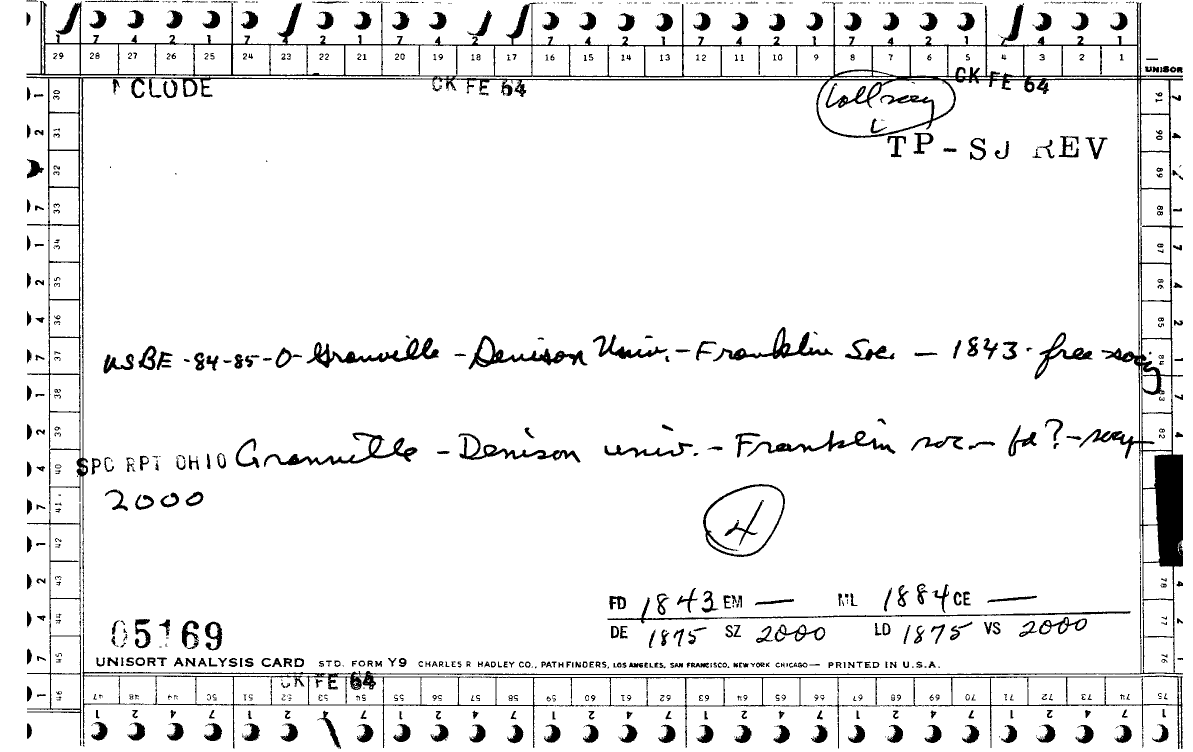 7 4 2 1 7 4 2 1 7 4 2 1 7 4 2 1 7 4 2 1 7 4 2 1 7 4 2 1
29 28 27 26 25 24 23 22 21 20 19 18 17 16 15 14 13 12 11 10 9 8 7 6 5 4 3 2 1
UNISOR
CLODE CK FE 64 CK FE 64
Coll socy
TP-SJ REV
USBE -84-85-O-Granville -Denison Univ.-Franklin Soc. - 1843- free-socy
SPC RPT OHIO Granville - Denison univ. - Franklin soc - fd? - socy -
2000
4
FD 1843 EM — ML 1884 CE —
DE 1875 SZ 2000 LD 1875 VS 2000
05169
UNISORT ANALYSIS CARD STD. FORM Y9 CHARLES R HADLEY CO., PATHFINDERS, LOS ANGELES, SAN FRANCISCO, NEW YORK CHICAGO — PRINTED IN U.S.A.
CK FE 64
47 48 49 50 51 52 53 54 55 56 57 58 59 60 61 62 63 64 65 66 67 68 69 70 71 72 73 74 75